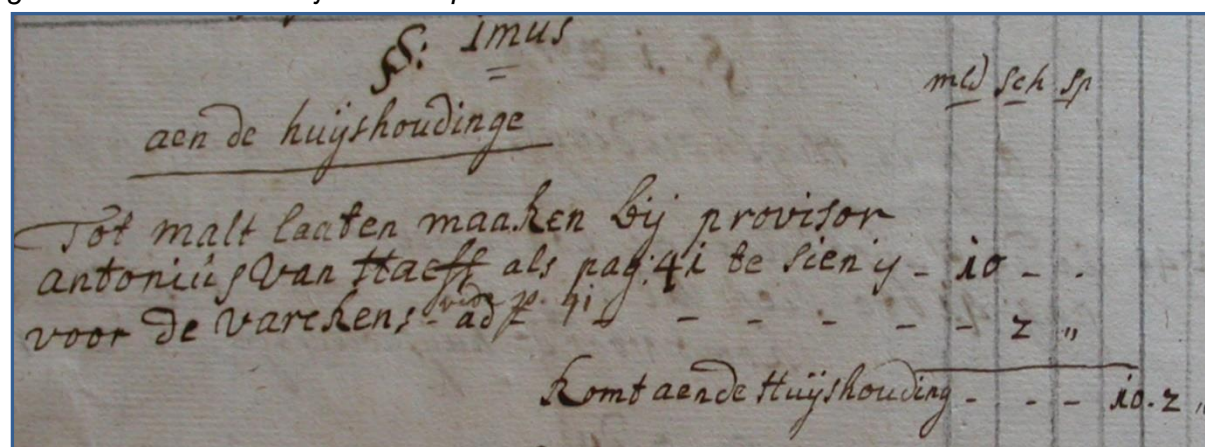 §: 1mus
mld sch sp
aen de huijshoudinge
Tot malt laaten maaken bij provisor
antonius van Haeff als pag: 41 te sien is - 10 - -
voor de varckens - vide ad p. 41 - - - - - - 2 „
komt aende Huijshouding - - - 10 - 2 „